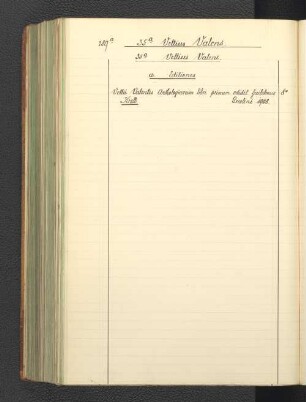 287a 35a Vettius Valens.
35a Vettius Valens.
a. Editiones
Vettii Valentis Anthologiarum libri primum edidit Guilelmus 8o
Kroll. Berolini 1908.